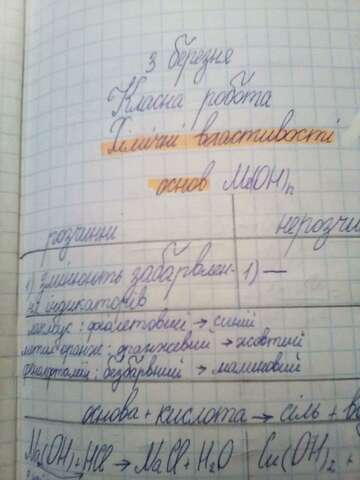 3 березня
Класна робота
Хімічні властивості
основ Me(OH)n
розчинні нерозчи
1) Змінюють забарвлен- 1) —
ня індикаторів
лакмус: фіолетовий → синій
метил оранж: оранжевий → жовтий
фенолфталеїн: безбарвний → малиновий
основа + кислота → сіль + в
Na(OH) + HCl → NaCl + H2O Cu(OH)2 +